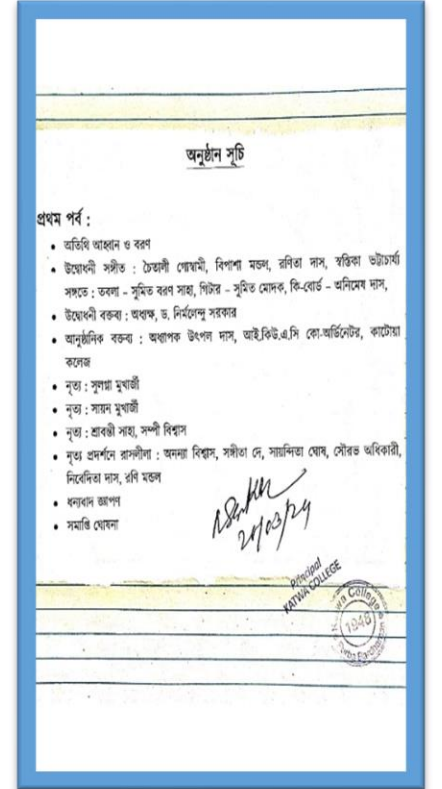 অনুষ্ঠান সূচি
প্রথম পর্ব :
• অতিথি আহ্বান ও বরণ
• উদ্বোধনী সঙ্গীত : চৈতালী গোস্বামী, বিপাশা মন্ডল, রণিতা দাস, স্বস্তিকা ভট্টাচার্য্য
সঙ্গতে : তবলা – সুমিত বরণ সাহা, গিটার – সুমিত মোদক, কি-বোর্ড – অনিমেষ দাস,
• উদ্বোধনী বক্তব্য : অধ্যক্ষ, ড. নির্মলেন্দু সরকার
• আনুষ্ঠানিক বক্তব্য : অধ্যাপক উৎপল দাস, আই.কিউ.এ.সি কো-অর্ডিনেটর, কাটোয়া
কলেজ
• নৃত্য : সুলগ্না মুখার্জী
• নৃত্য : সায়ন মুখার্জী
• নৃত্য : শ্রাবন্তী সাহা, সম্পী বিশ্বাস
• নৃত্য প্রদর্শনে রাসলীলা : অনন্যা বিশ্বাস, সঙ্গীতা দে, সায়ন্দিতা ঘোষ, সৌরভ অধিকারী,
নিবেদিতা দাস, রণি মন্ডল
• ধন্যবাদ জ্ঞাপণ
• সমাপ্তি ঘোষনা
Principal
KATWA COLLEGE
Katwa College
1948
Purba Bardhaman